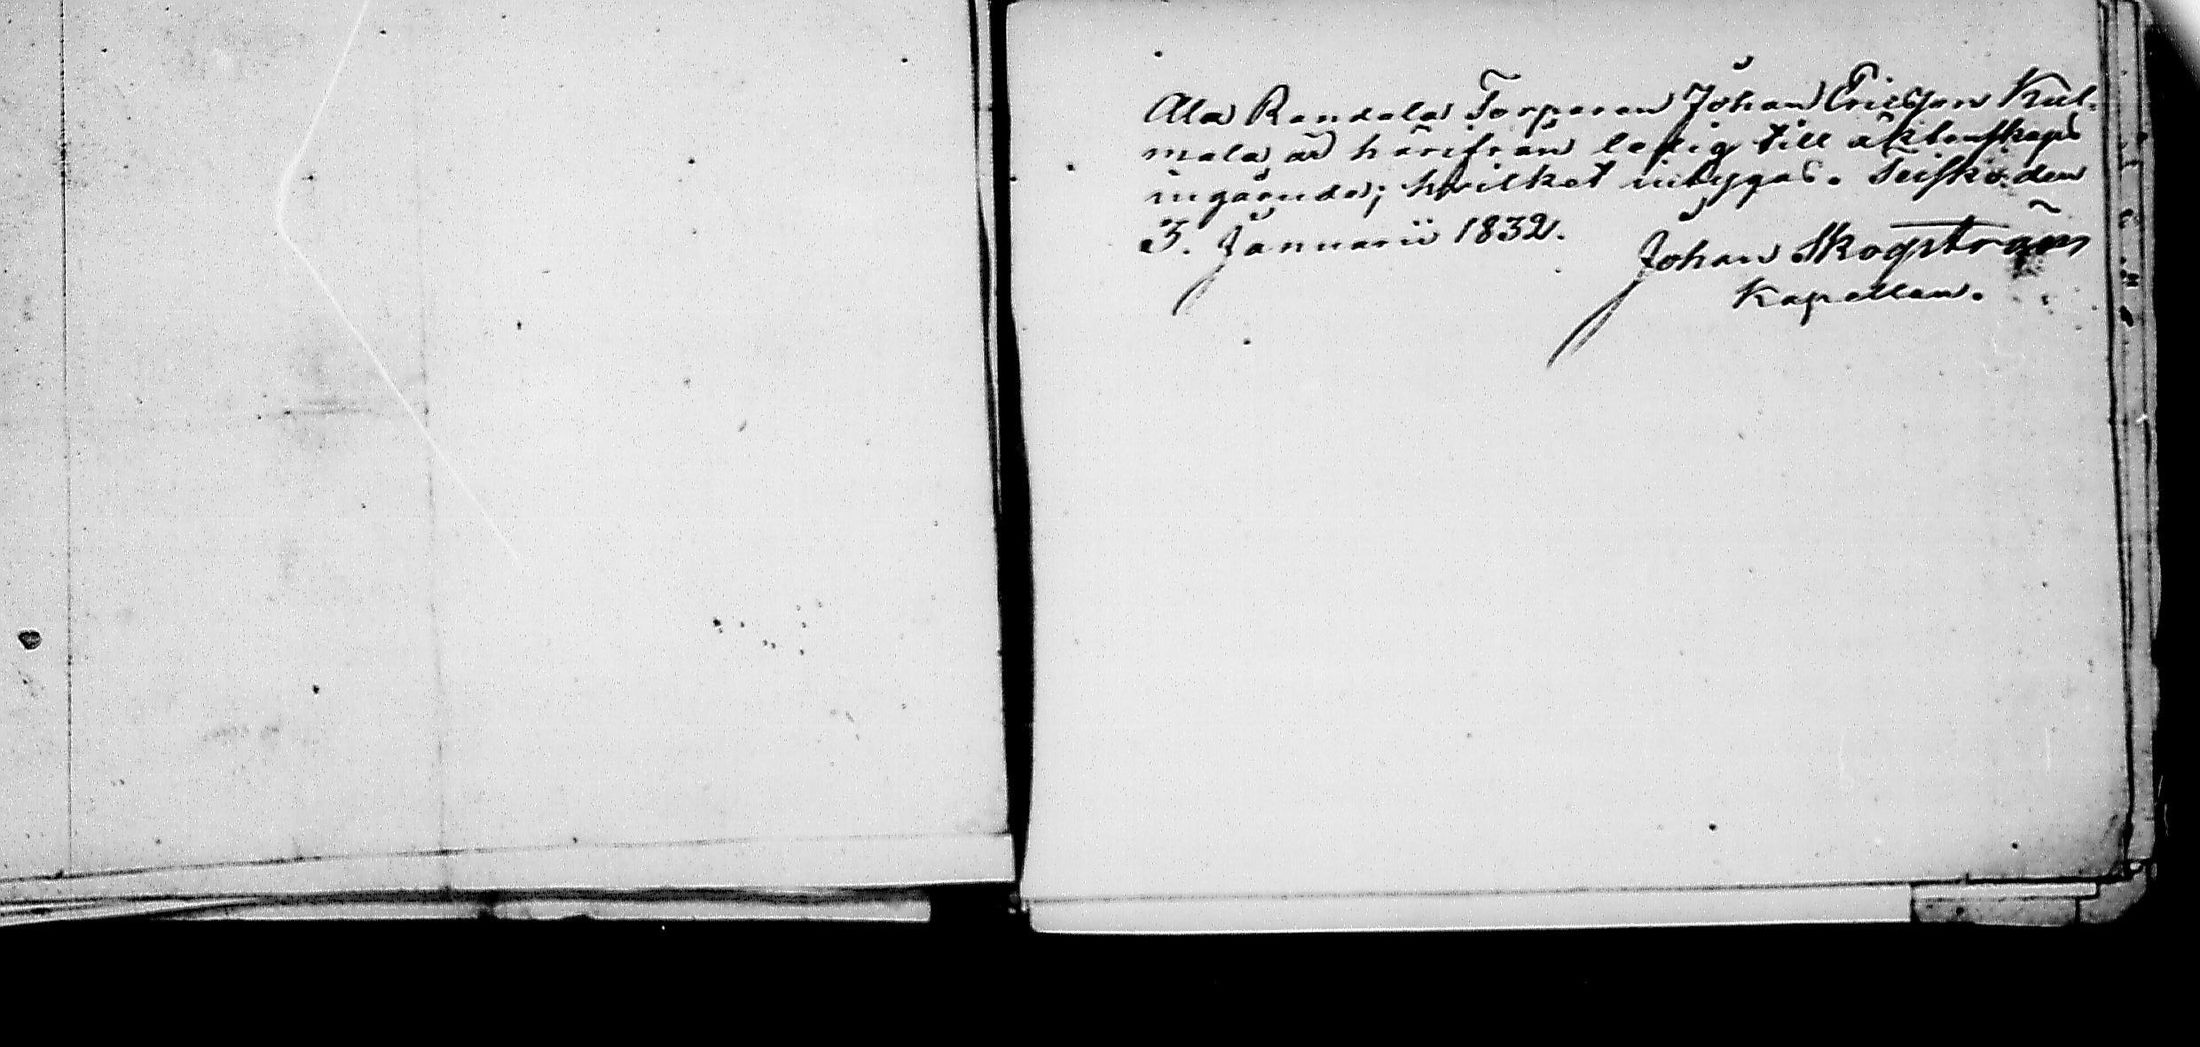 Ala Randala Torparen Johan Ericsson Kul-
mala är härifrån ledig till äktenskaps
ingående; hvilket intygas. Teisko den
3. Januarii 1832.
Johan Skogström
Kapellan.